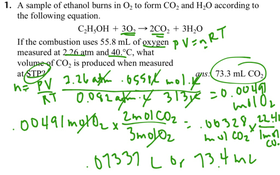 1. A sample of ethanol burns in O₂ to form CO₂ and H₂O according to
the following equation.
C₂H₅OH + 3O₂ → 2CO₂ + 3H₂O
If the combustion uses 55.8 mL of oxygen PV=nRT
measured at 2.26 atm and 40.°C, what
volume of CO₂ is produced when measured
at STP? ans: 73.3 mL CO₂
n = PV/RT 2.26 atm · .0558 L · mol · K / 0.082 atm · L 313 K = 0.00491 mol O₂
.00491 mol O₂ × 2 mol CO₂ / 3 mol O₂ = .00328 mol CO₂ ×
.07337 L or 73.4 mL